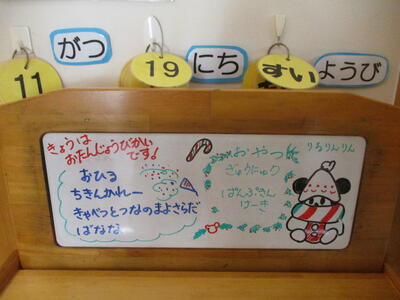 11 がつ 19 にち すい ようび
きょうは
おたんじょうびかい
です!
おひる
ちきんかれー
きゃべつとつなのまよさらだ
ばなな
おやつ
ぎゅうにゅう
ぱんぷきん
けーき
りるりんりん